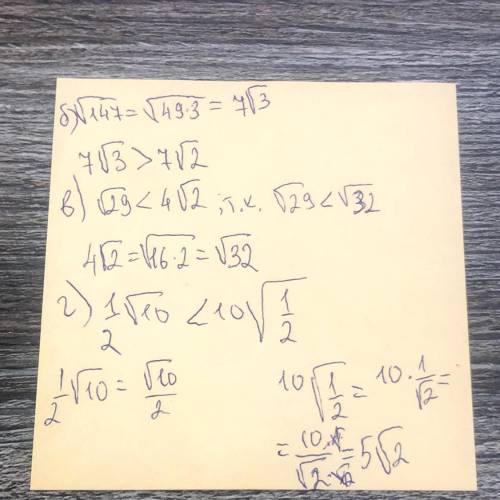 б) √147 = √49·3 = 7√3
7√3 > 7√2
в) √29 < 4√2, т.к. √29 < √32
4√2 = √16·2 = √32
г) 1/2 √10 < 10√1/2
1/2 √10 = √10/2
10√1/2 = 10·1/√2 =
= 10·√2/√2·√2 = 5√2